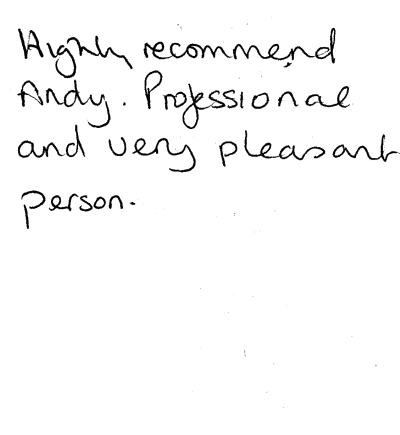 Highly recommend
Andy. Professional
and very pleasant
person.